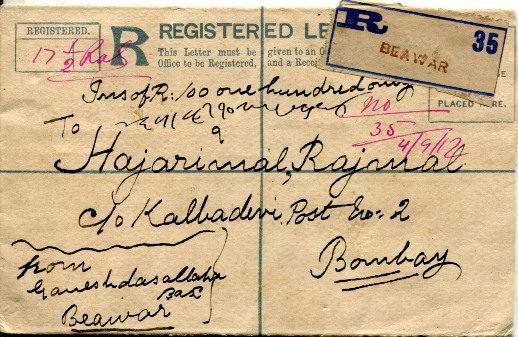 REGISTERED.
R
REGISTERED LE
This Letter must be given to an O
Office to be Registered, and a Recei
R 35
BEAWAR
PLACED HERE.
17 ½
Ins of R: 100 one hundred only
To
No
35
4/9/12
Hajarimal, Rajmal
c/o Kalbadevi Post No: 2
Bombay
from
Ganeshdas
Beawar